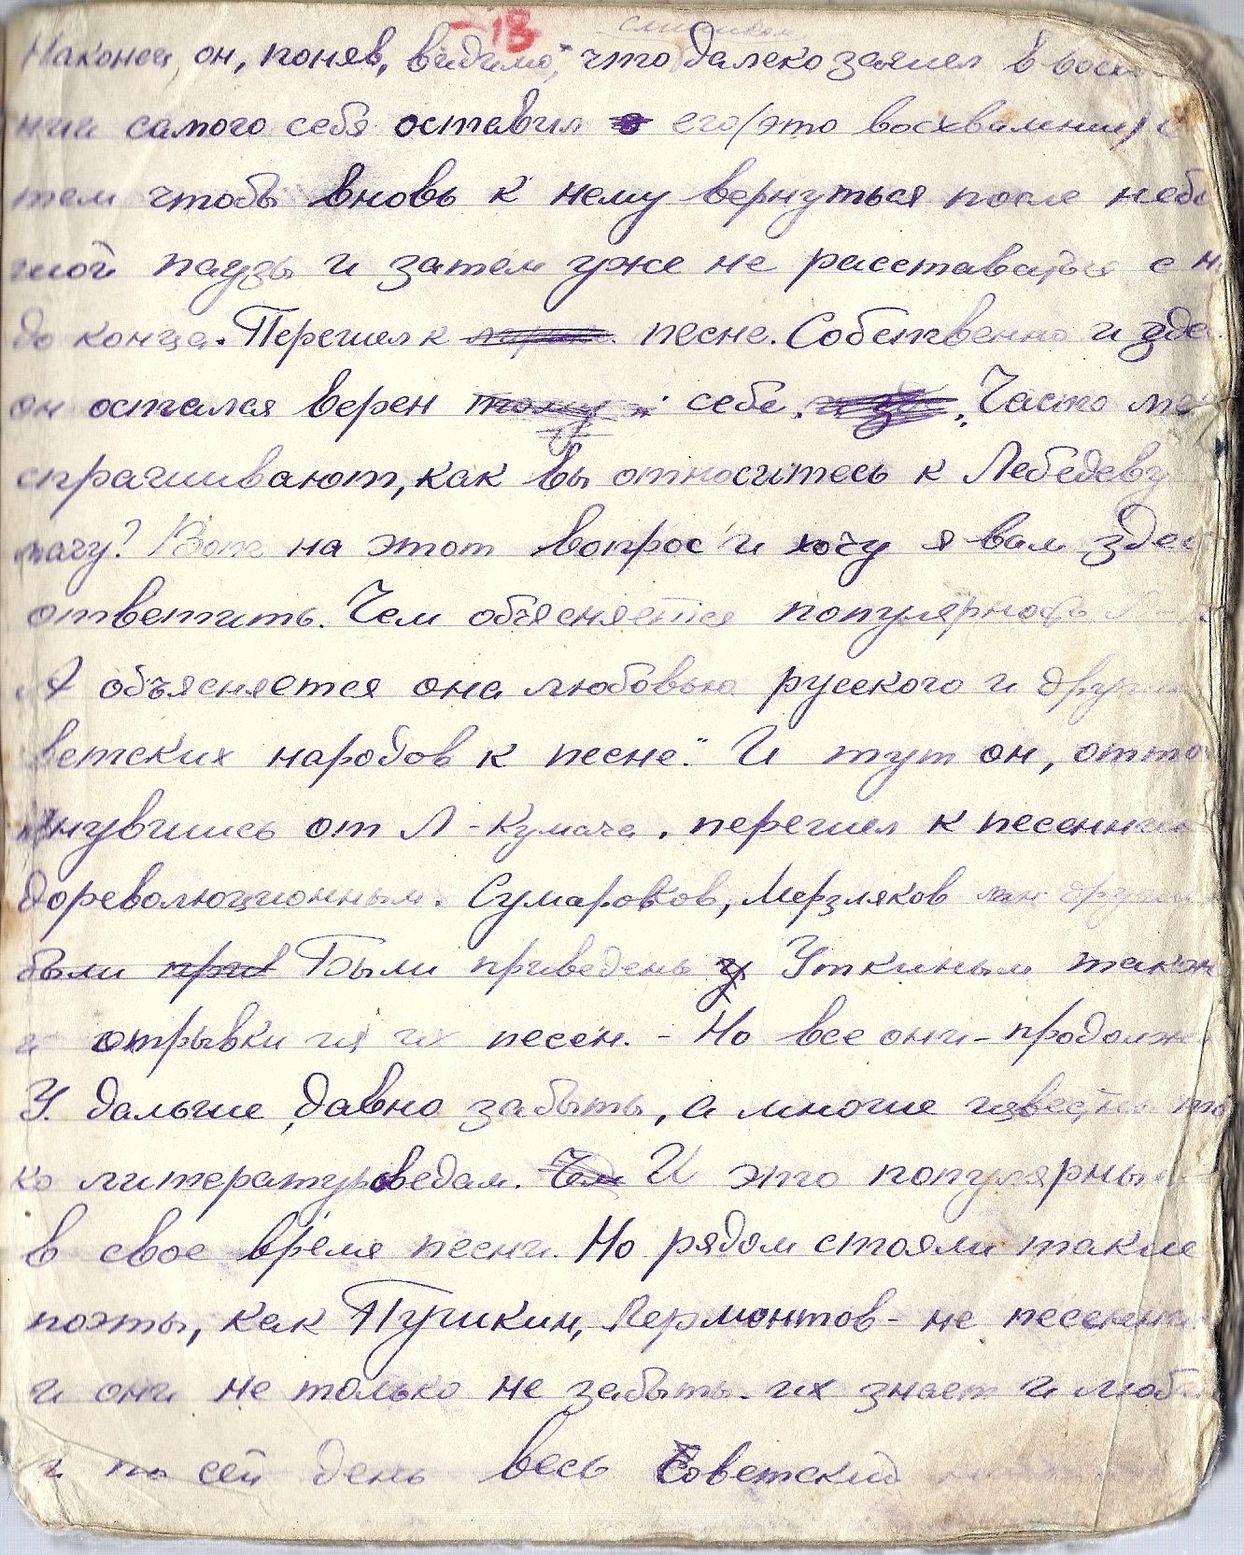 13
слишком
Наконец он, поняв, видимо, что далеко зашел в восх
нии самого себя оставил его (это восхваление) с
тем чтобы вновь к нему вернуться после небо
шой паузы и затем уже не расставаться с н
до конца. Перешел к песне. Собственно и зде
он остался верен тому себе. Часто ме
спрашивают, как вы относитесь к Лебедеву
мачу? Вот на этот вопрос и хочу я вам здес
ответить. Чем объясняется популярность Л-
А объясняется она любовью русского и других
ветских народов к песне." И тут он, отто
кнувшись от Л-Кумача, перешел к песенникам
дореволюционным. Сумароков, Мерзляков други
были прив Были приведены Уткиным также
и отрывки из их песен. - Но все они - продолжа
У. дальше, давно забыты, а многие известны то
ко литературоведам. Чем И это популярные
в свое время песни. Но рядом стояли такие
поэты, как Пушкин, Лермонтов - не песенники
и они не только не забыты. их знает и люби
и по сей день весь Советский